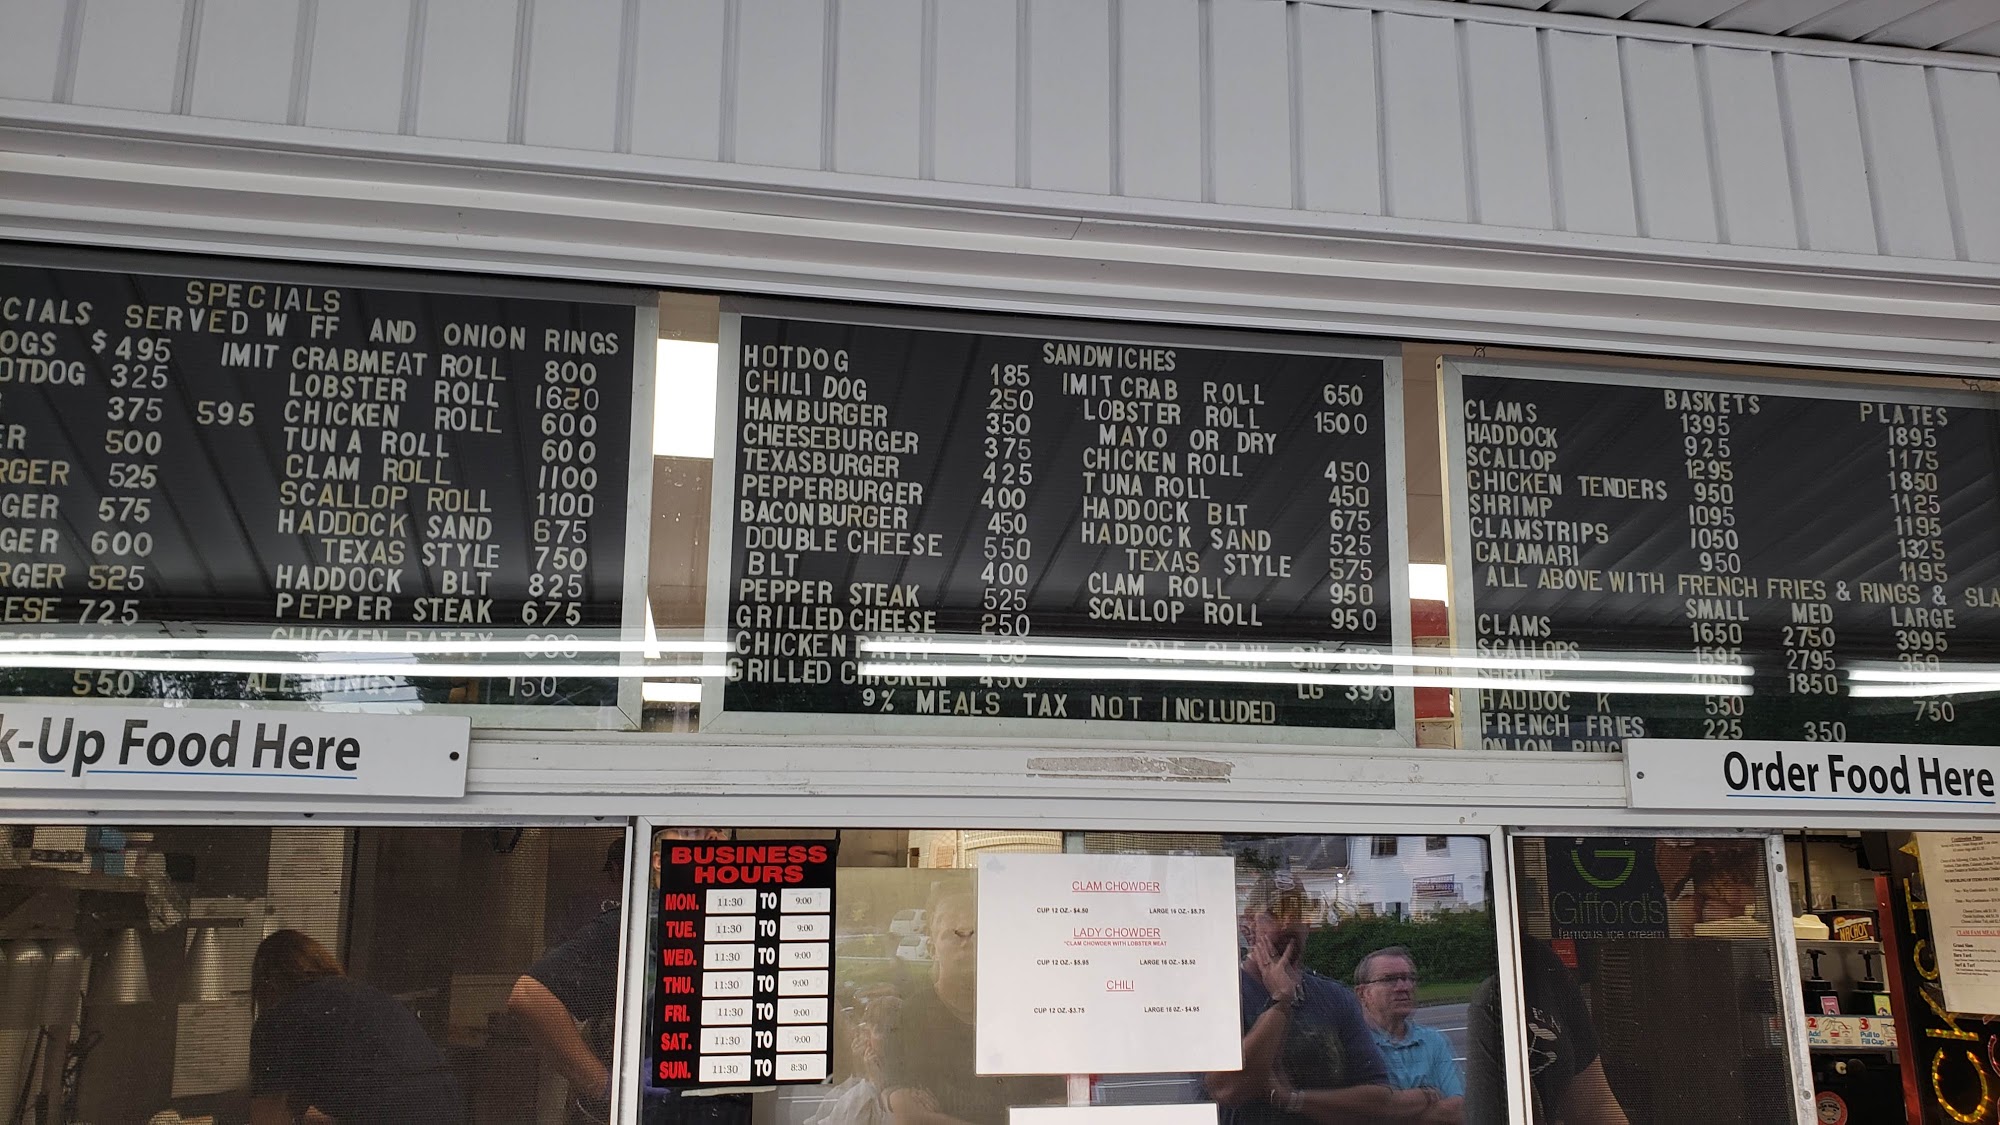 SPECIALS
CIALS SERVED W FF AND ONION RINGS
OGS $ 495 IMIT CRABMEAT ROLL 800
OTDOG 325 LOBSTER ROLL 1620
375 595 CHICKEN ROLL 600
ER 500 TUNA ROLL 600
RGER 525 CLAM ROLL 1100
GER 575 SCALLOP ROLL 1100
GER 600 HADDOCK SAND 675
RGER 525 TEXAS STYLE 750
EESE 725 HADDOCK BLT 825
PEPPER STEAK 675
CHICKEN PATTY 600
550 ALL RINGS 150
SANDWICHES
HOTDOG 185 IMIT CRAB ROLL 650
CHILI DOG 250 LOBSTER ROLL 1500
HAMBURGER 350 MAYO OR DRY
CHEESEBURGER 375 CHICKEN ROLL 450
TEXASBURGER 425 TUNA ROLL 450
PEPPERBURGER 400 HADDOCK BLT 675
BACONBURGER 450 HADDOCK SAND 525
DOUBLE CHEESE 550 TEXAS STYLE 575
BLT 400 CLAM ROLL 950
PEPPER STEAK 525 SCALLOP ROLL 950
GRILLED CHEESE 250
CHICKEN PATTY 450 COLE SLAW SM 150
GRILLED CHICKEN 450 LG 395
9% MEALS TAX NOT INCLUDED
BASKETS PLATES
CLAMS 1395 1895
HADDOCK 925 1175
SCALLOP 1295 1850
CHICKEN TENDERS 950 1125
SHRIMP 1095 1195
CLAMSTRIPS 1050 1325
CALAMARI 950 1195
ALL ABOVE WITH FRENCH FRIES & RINGS & SLA
SMALL MED LARGE
CLAMS 1650 2750 3995
SCALLOPS 1595 2795
SHRIMP 1850
HADDOCK 550 750
FRENCH FRIES 225 350
ONION RING
k-Up Food Here
Order Food Here
BUSINESS
HOURS
MON. 11:30 TO 9:00
TUE. 11:30 TO 9:00
WED. 11:30 TO 9:00
THU. 11:30 TO 9:00
FRI. 11:30 TO 9:00
SAT. 11:30 TO 9:00
SUN. 11:30 TO 8:30
CLAM CHOWDER
CUP 12 OZ.- $4.50 LARGE 16 OZ.- $5.75
LADY CHOWDER
*CLAM CHOWDER WITH LOBSTER MEAT
CUP 12 OZ.- $5.95 LARGE 16 OZ.- $8.50
CHILI
CUP 12 OZ.-$3.75 LARGE 16 OZ.- $4.95
G
Gifford's
famous ice cream
NACHOS
2 Add Flavor
3 Pull to Fill Cup